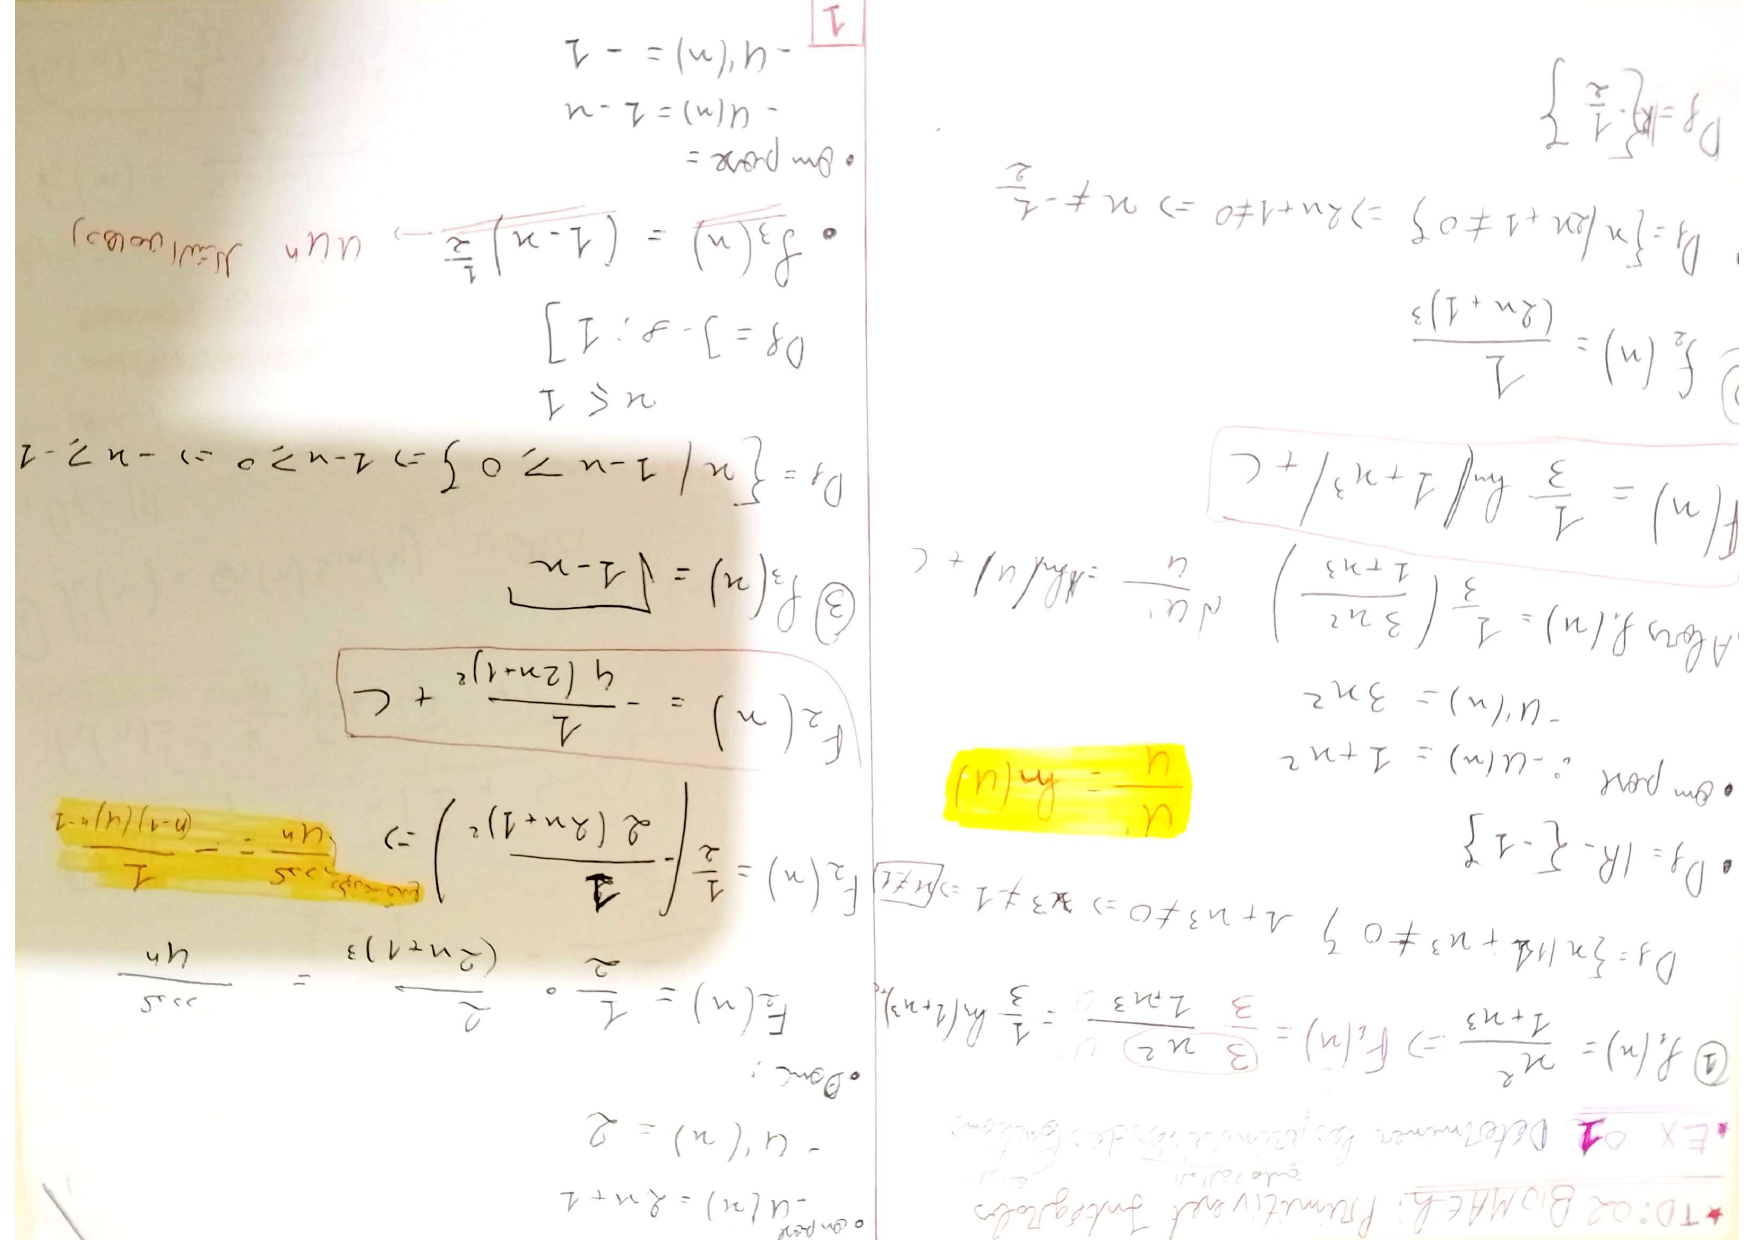 ★ TD: 02 BIOMATH: Primitive et Intégrales
★ EX 01 Déterminer les primitives des fonctions
① f₁(x) = x² / 1+x³ => F₁(x) = 3/3 x² / 1+x³ = 1/3 ln(1+x³)+c
Df = {x / 1+x³ ≠ 0} 1+x³ ≠ 0 => x³ ≠ 1 => x ≠ 1
• Df = IR - {-1}
• on pose : - U(x) = 1+x²
U' / U = ln(U)
- U'(x) = 3x²
Alors f₁(x) = 1/3 ( 3x² / 1+x³ ) U' / U = ln|u| + C
F(x) = 1/3 ln|1+x³| + C
f₂(x) = 1 / (2x+1)³
Df = {x / 2x+1 ≠ 0} => 2x+1 ≠ 0 => x ≠ -1/2
Df = IR {-1/2}
• on pose
- U(x) = 2x+1
- U'(x) = 2
• Donc :
F₂(x) = 1/2 • 2 / (2x+1)³ = / Uⁿ
F₂(x) = 1/2 ( - 1 / 2(2x+1)² ) => / Uⁿ = - 1 / (n-1)(U)ⁿ⁻¹
F₂(x) = - 1 / 4(2x+1)² + C
③ f₃(x) = √1-x
Df = {x / 1-x ≥ 0} => 1-x ≥ 0 => -x ≥ -1
x ≤ 1
Df = ]-∞ ; 1]
• f₃(x) = (1-x)^1/2 → U'Uⁿ
• on pose =
- U(x) = 1-x
- U'(x) = -1
1